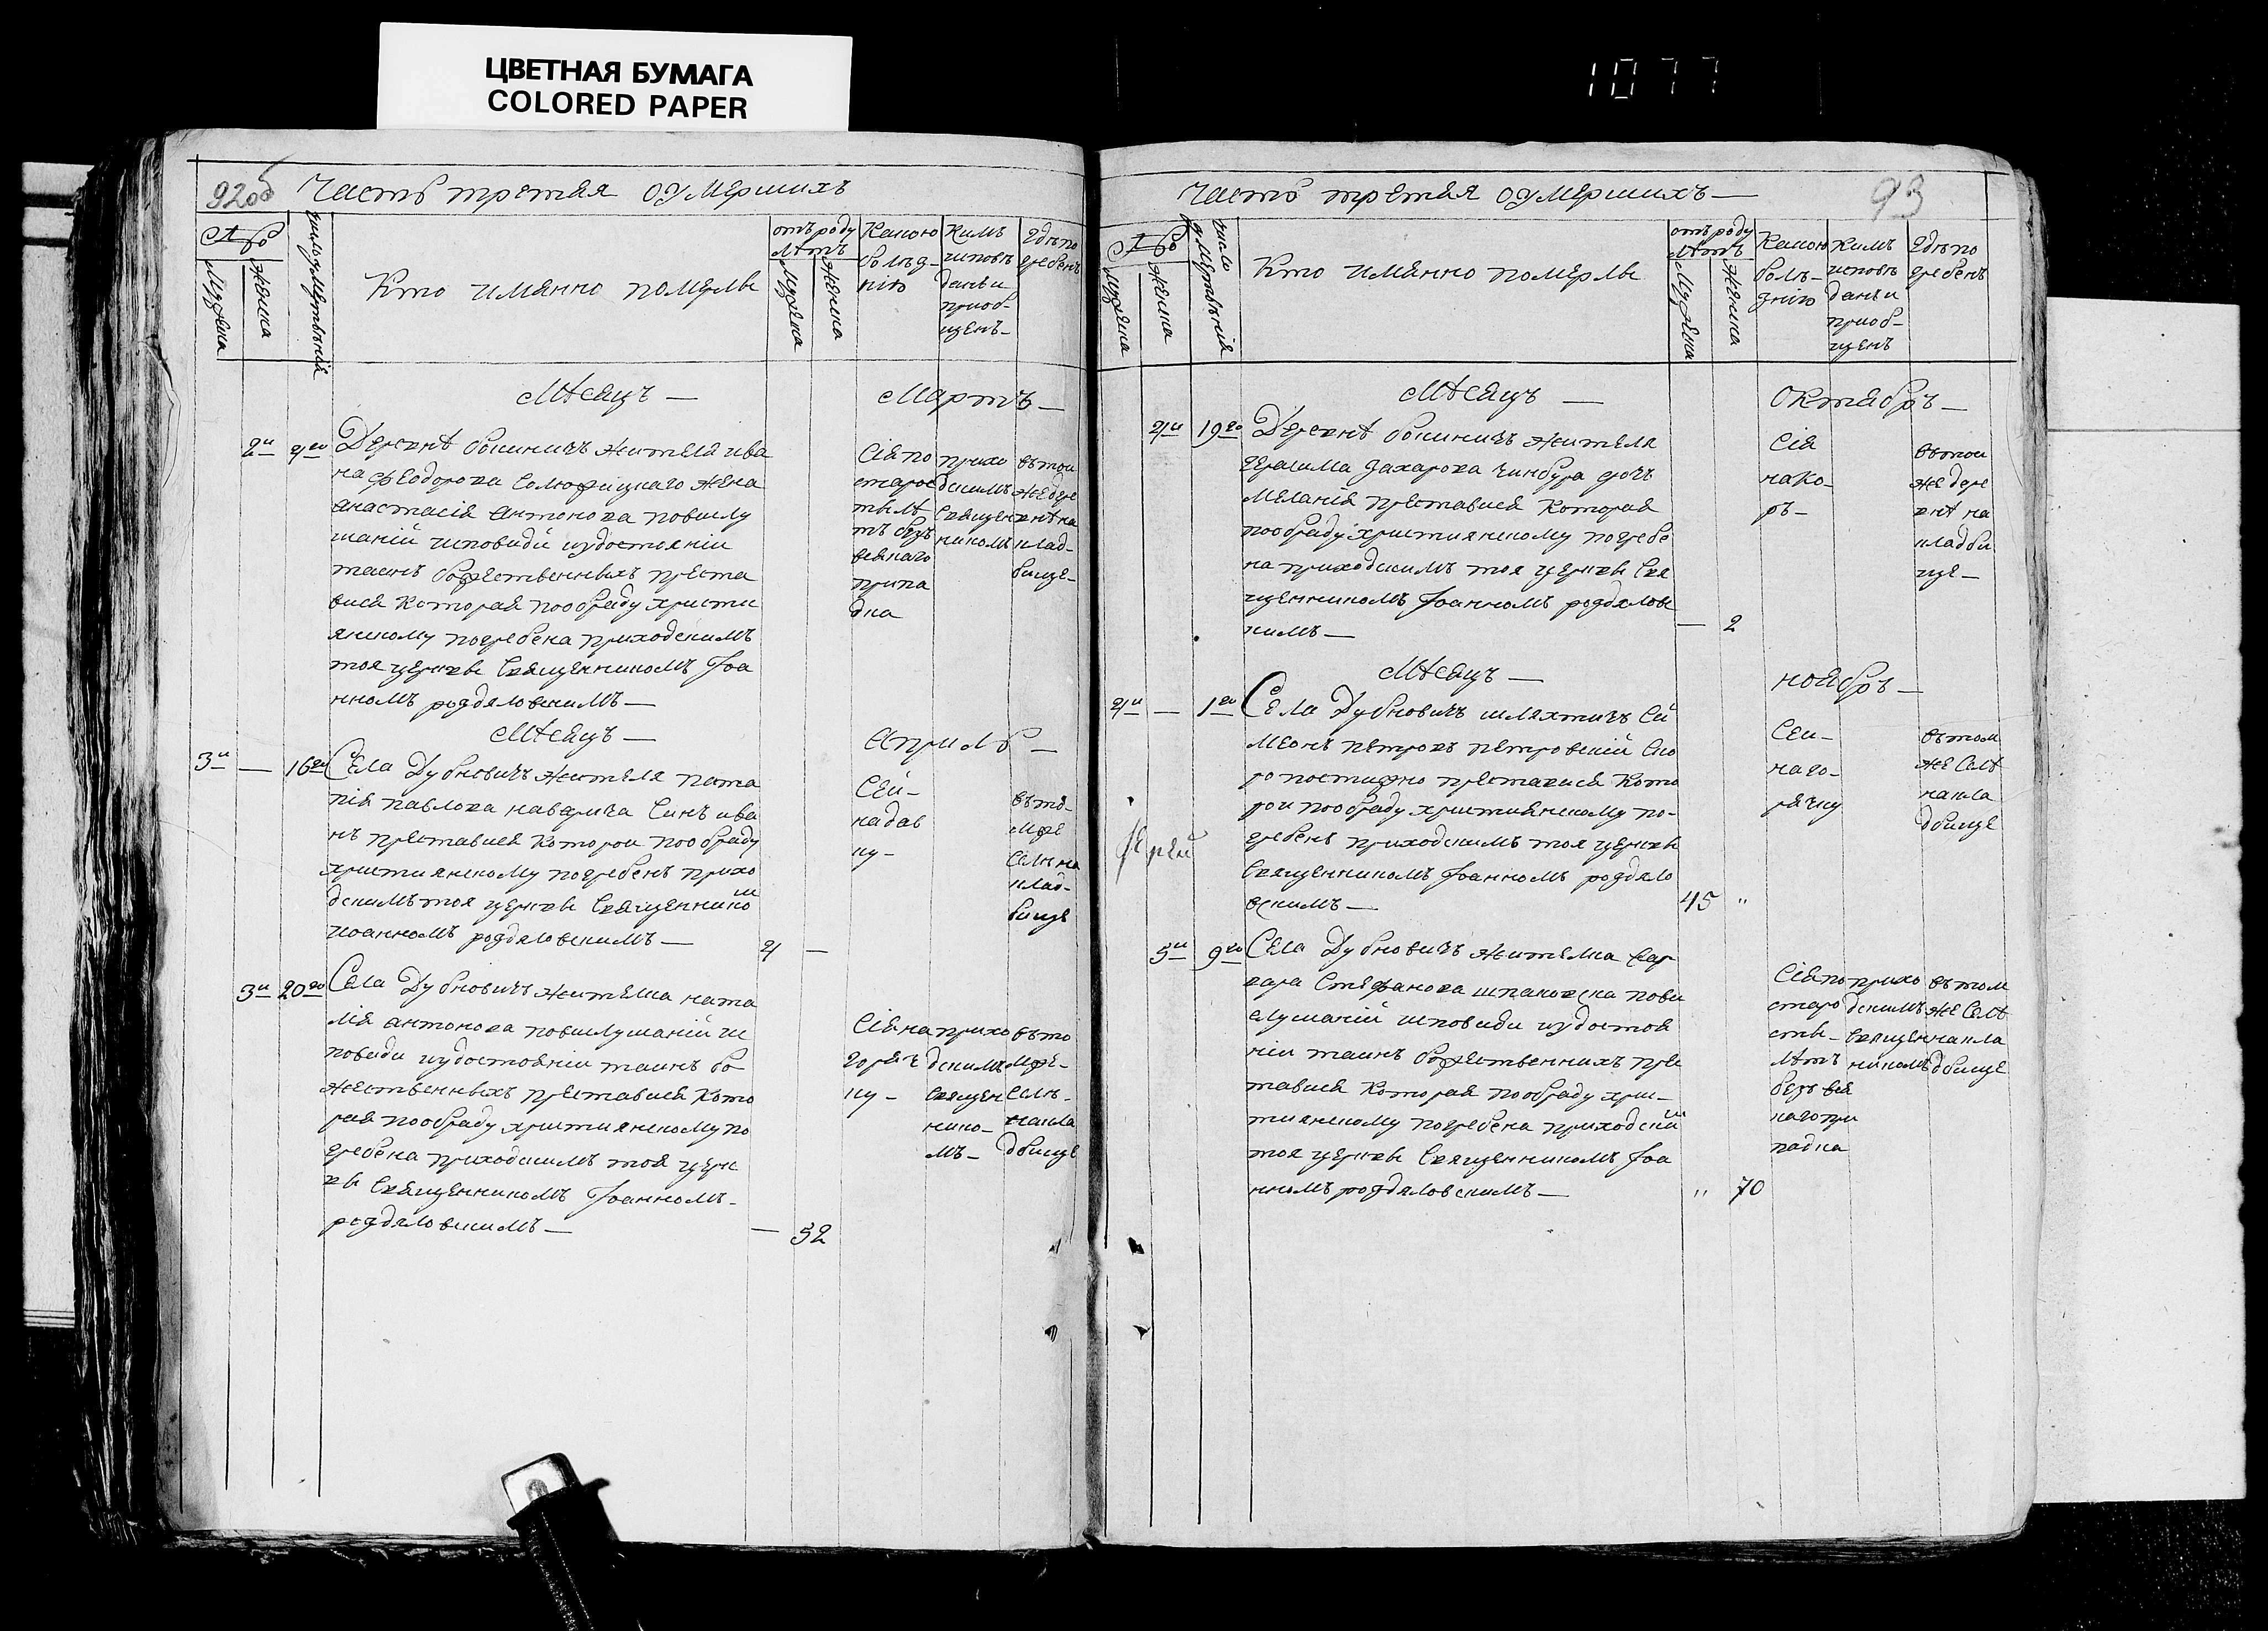 ЦВЕТНАЯ БУМАГА
COLORED PAPER
1077
92об
Часть третая оумершихъ
Кто имянно померлъ
отъ роду
лѣтъ
Мужеска
Женска
Какою
болѣз-
нію
Кимъ
исповѣ
данъ и
приоб-
щенъ
Гдѣ по
гребенъ
Мѣсяцъ — Мартъ —
2и
Деревнѣ жителя ива
на Феодорова жена
анастасія антонова повислу
шаніи исповиди иудостояніи
таинъ божественныхъ преста
вися которая пообряду христи
янкому погребена приходскимъ
тоя церкви Священникомъ Іоа
нномъ роздяловскимъ —
Сія по
старос
ти лѣ
тъ безъ
всякаго
припа
дка
прихо
дскимъ
Священ
никомъ
въ тои
же дере
внѣ на
клад-
бище-
Мѣсяцъ — Априль —
3и — 16го
Села Дубновичъ жителя пота
пія павлова синъ ива
нъ преставися которои пообряду
християнскому погребенъ прихо
дскимъ тоя церкви Священнико
иоанномъ роздяловскимъ —
4 —
Сеи-
на дав
ку-
въ то-
мже
Селѣ на
клад-
бище
3и 20го
Села Дубновичъ жителка ната
лія антонова повислушаніи ис
повиди иудостояніи таинъ бо-
жественныхъ преставися кото
рая пообряду християнскому по
гребена приходскимъ тоя церк
ви Священникомъ Іоанномъ-
роздяловскимъ —
— 32
Сія на
горяч
ку-
прихо
дскимъ
Священ
нико-
мъ-
въ то
мже-
Селѣ-
накла
дбище
Часть третая оумершихъ —
93
Кто имянно померлъ
отъ роду
лѣтъ
Мужеска
Женска
Какою
болѣ-
знію
Кимъ
исповѣ
данъ и
приоб-
щенъ
Гдѣ по
гребенъ
Мѣсяцъ — Октябръ —
4и 19го
Деревнѣ жителя
герасима захарова дочъ
Меланія преставися которая
пообряду християнскому погребе
на приходскимъ тоя церкви Свя
щенникомъ Іоанномъ роздялове
кимъ —
— 2
Сія
нако-
ръ-
въ тои
же дере
внѣ на
кладби
ще —
Мѣсяцъ — ноябръ —
4и — 1го
Села Дубновичъ шляхтичъ Си
меонъ петровъ петровскій Ско
ропостижно преставися кото
рои пообряду християнскому по-
гребенъ приходскимъ тоя церкви
Священникомъ Іоанномъ роздяло
вскимъ —
45 "
Сеи-
на го-
рячку
въ том
же Селѣ
накла
дбище
5и 9го
Села Дубновичъ жителка вар
вара Стефанова шпаковска пови
слушаніи исповиди иудостоя
ніи таинъ божественнихъ прес
тавися которая пообряду хрис-
тиянскому погребена приходски
тоя церкви Священникомъ Іоа
нномъ роздяловскимъ —
" 70
Сія по
старо
сти-
лѣтъ
безъ вся
каго при
падка
прихо
дскимъ
Священ
никомъ
въ том
же Селѣ
накла
дбище